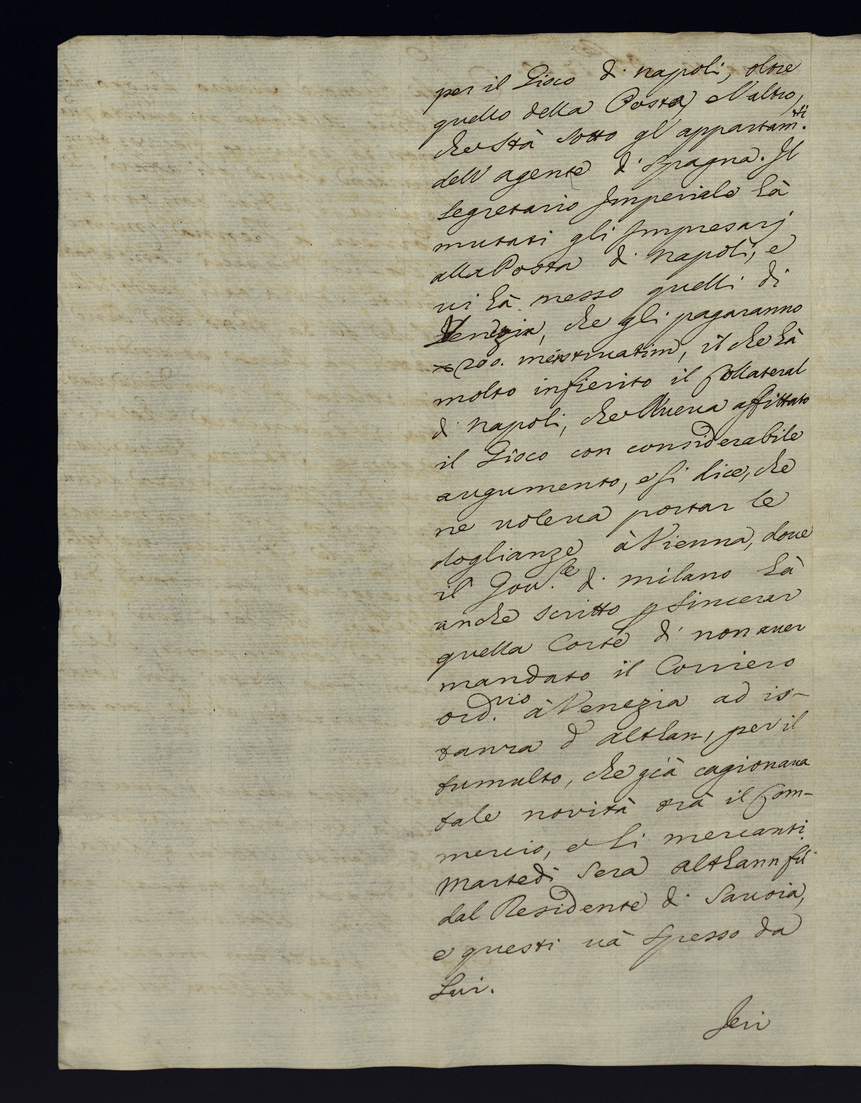 per il Gioco di napoli, oltre
quello della Posta, e l'altro,
che stà sotto gl'appartam.ti
dell'agente di Spagna. Il
Segretario Imperiale hà
mutati gli Impresarj
alla Posta di napoli, e
vi hà messo quelli di
Venezia, che gli pagaranno
200. menstruatim, il che hà
molto infierito il Collateral
di napoli, che l'aveva affittato
il Gioco con considerabile
augumento, e si dice, che
ne voleva portar le
doglianze à Vienna, dove
il Gov.re di milano hà
anche scritto p sincerar
quella Corte di non aver
mandato il Corriero
ord.rio à Venezia ad is-
tanza d'Althan, per il
tumulto, che già cagionava
tale novità trà il Com-
mercio, e li mercanti.
Martedì sera Althann fù
dal Residente di Savoia,
e questi và spesso da
Lui.
Jeri